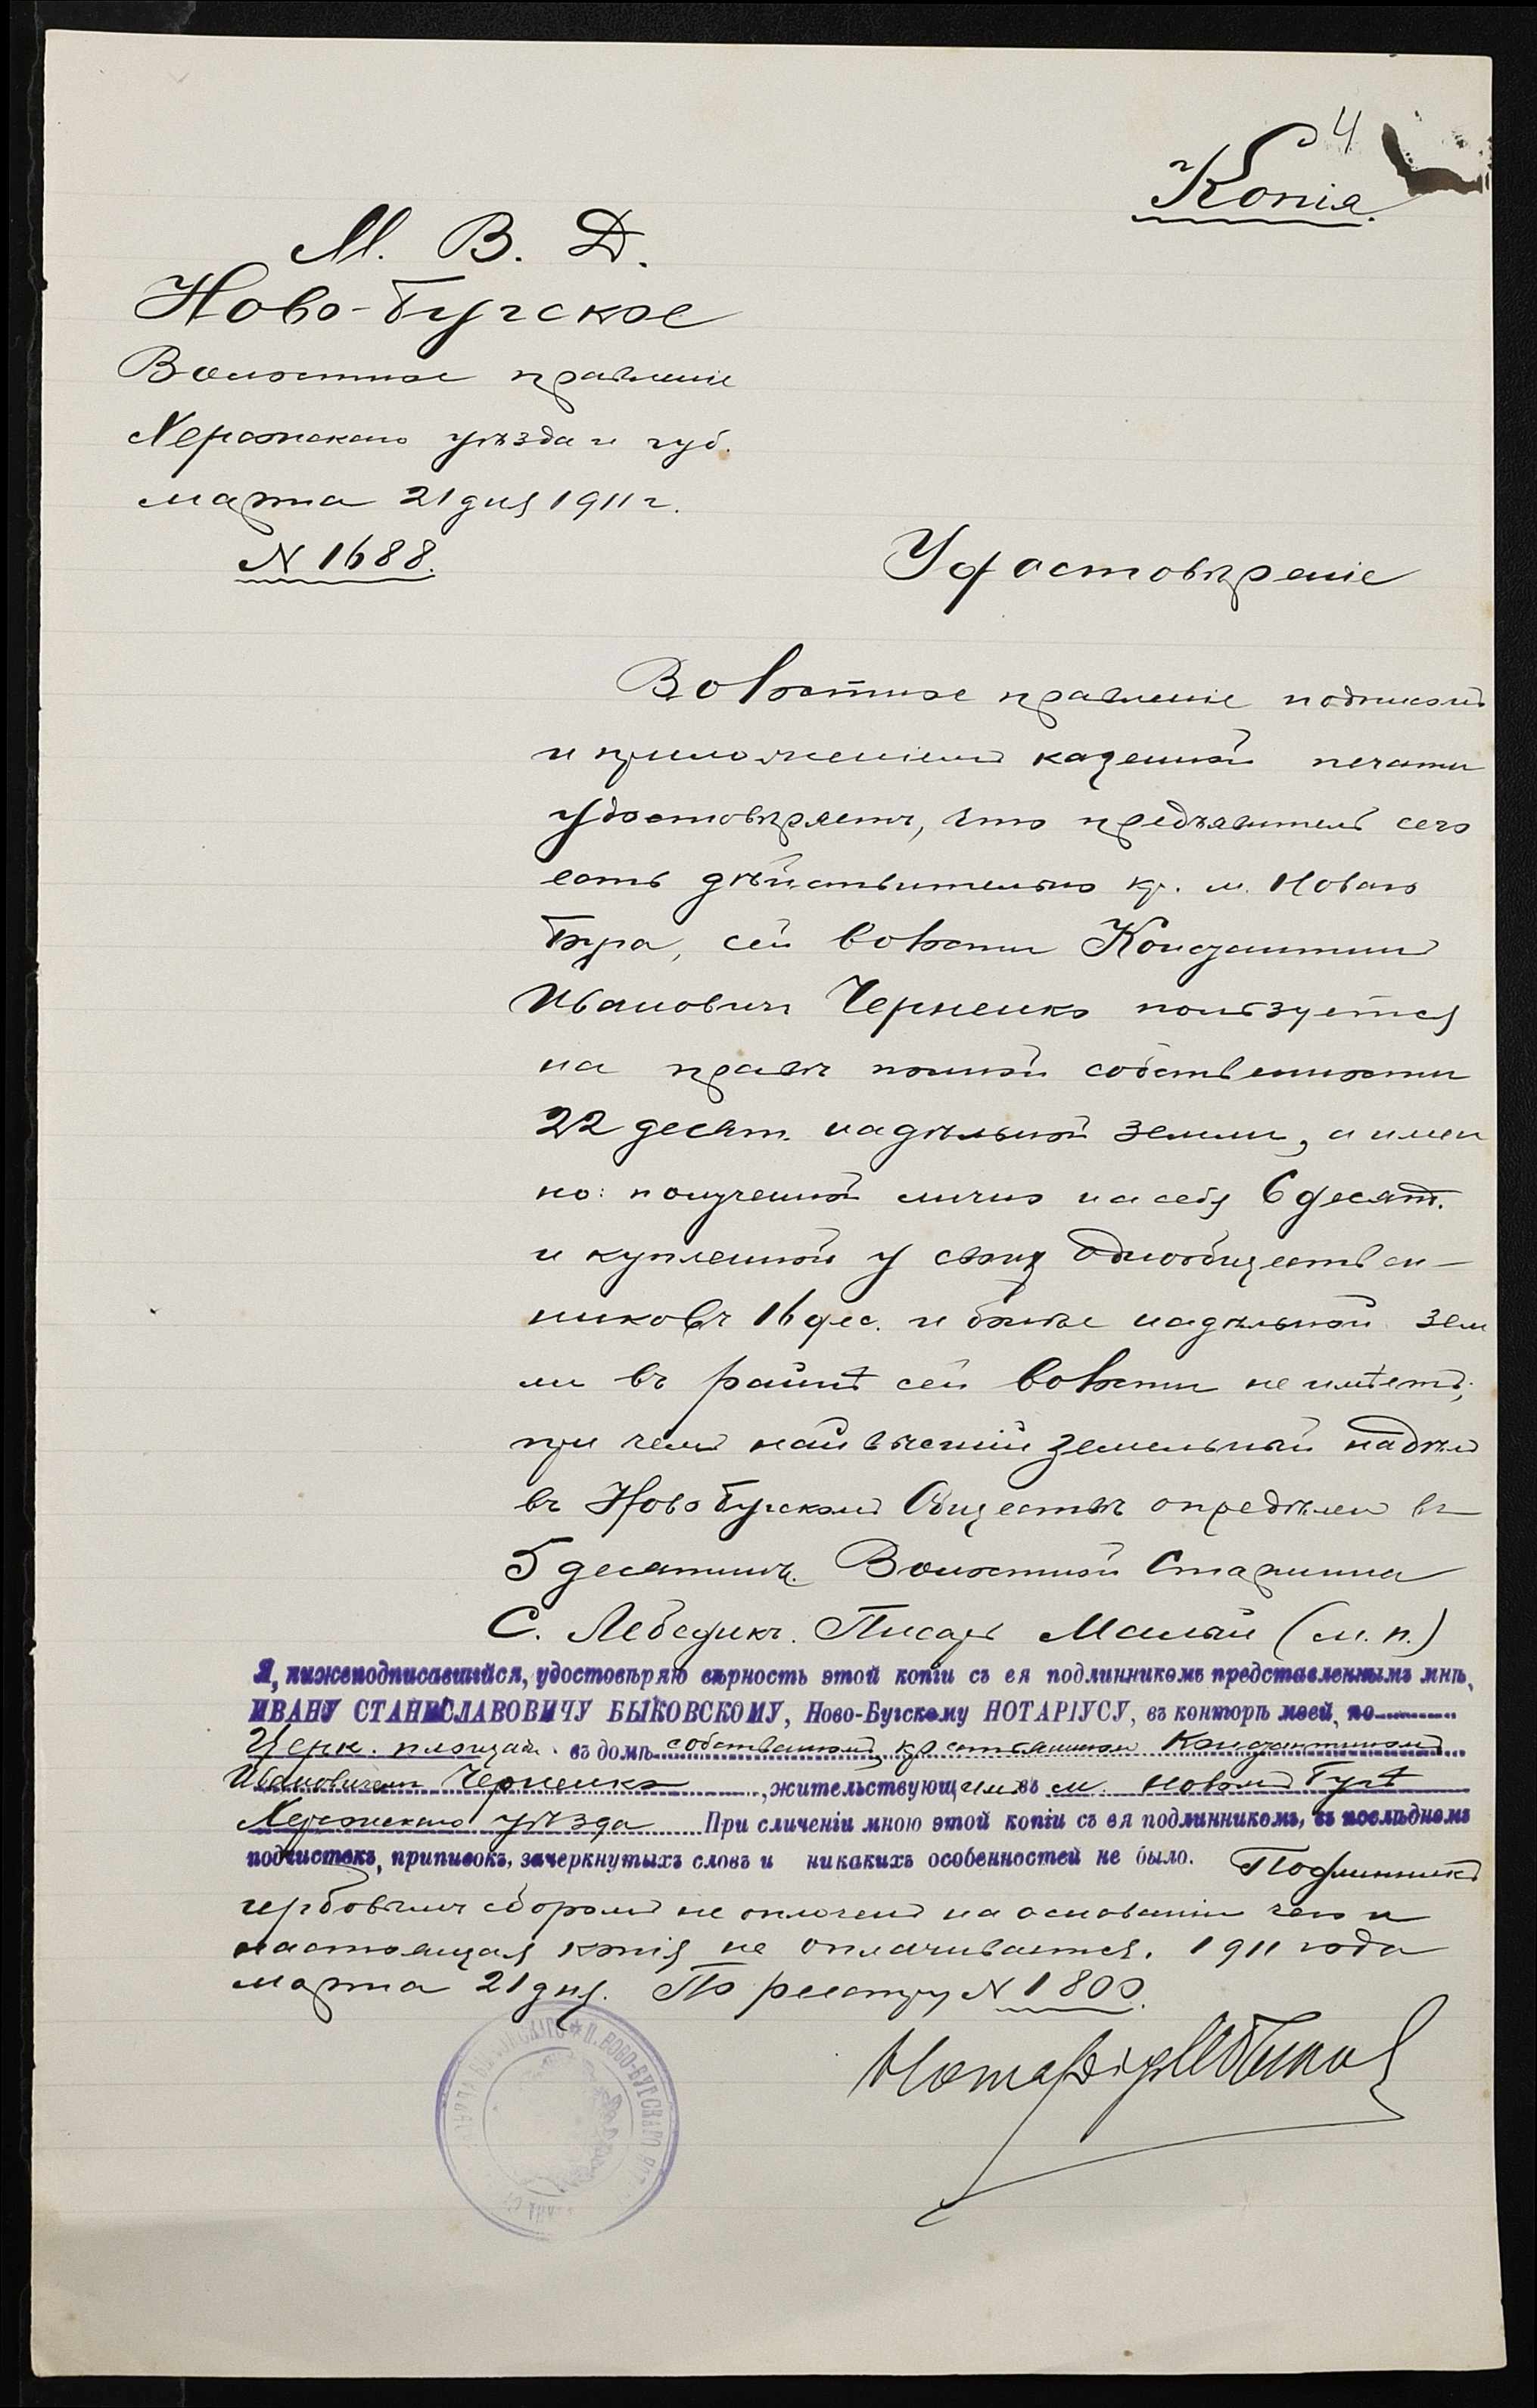 4
Копія.
М. В. Д.
Ново-Бугское
Волостное правленіе
Херсонскаго уѣзда и губ.
марта 21 дня 1911 г.
N 1688.
Удостовѣреніе
Волостное правленіе подписомъ
и приложеніемъ казенной печати
удостовѣряетъ, что предъявитель сего
есть дѣйствительно кр. м. Новаго
Буга, сей волости Константинъ
Ивановичъ Черненко пользуется
на правѣ полной собственности
22 десят. надѣльной земли, а имен
но: полученной лично на себя 6 десят.
и купленной у своихъ однообществен-
никовъ 16 дес. и болѣе надѣльной зем
ли въ раіонѣ сей волости не имѣетъ;
при чемъ наивысшій земельный надѣлъ
въ Ново Бугскомъ Обществѣ опредѣленъ въ
5 десятинъ. Волостной Старшина
С. Лебедикъ. Писарь Малый (м. п.)
Я, нижеподписавшійся, удостовѣряю вѣрность этой копіи съ ея подлинникомъ представленнымъ мнѣ,
ИВАНУ СТАНИСЛАВОВИЧУ БЫКОВСКОМУ, Ново-Бугскому НОТАРІУСУ, въ конторѣ моей, по
Церк. площади въ домѣ собственномъ, крестьяниномъ Константиномъ
Ивановичемъ Черненко, жительствующимъ въ м. Новомъ Бугѣ
Херсонскаго уѣзда При сличеніи мною этой копіи съ ея подлинникомъ, въ послѣднемъ
подчистокъ, приписокъ, зачеркнутыхъ словъ и никакихъ особенностей не было. Подлинникъ
гербовымъ сборомъ не оплаченъ на основаніи чего и
настоящая копія не оплачивается. 1911 года
марта 21 дня. По реестру N 1800.
Нотаріусъ